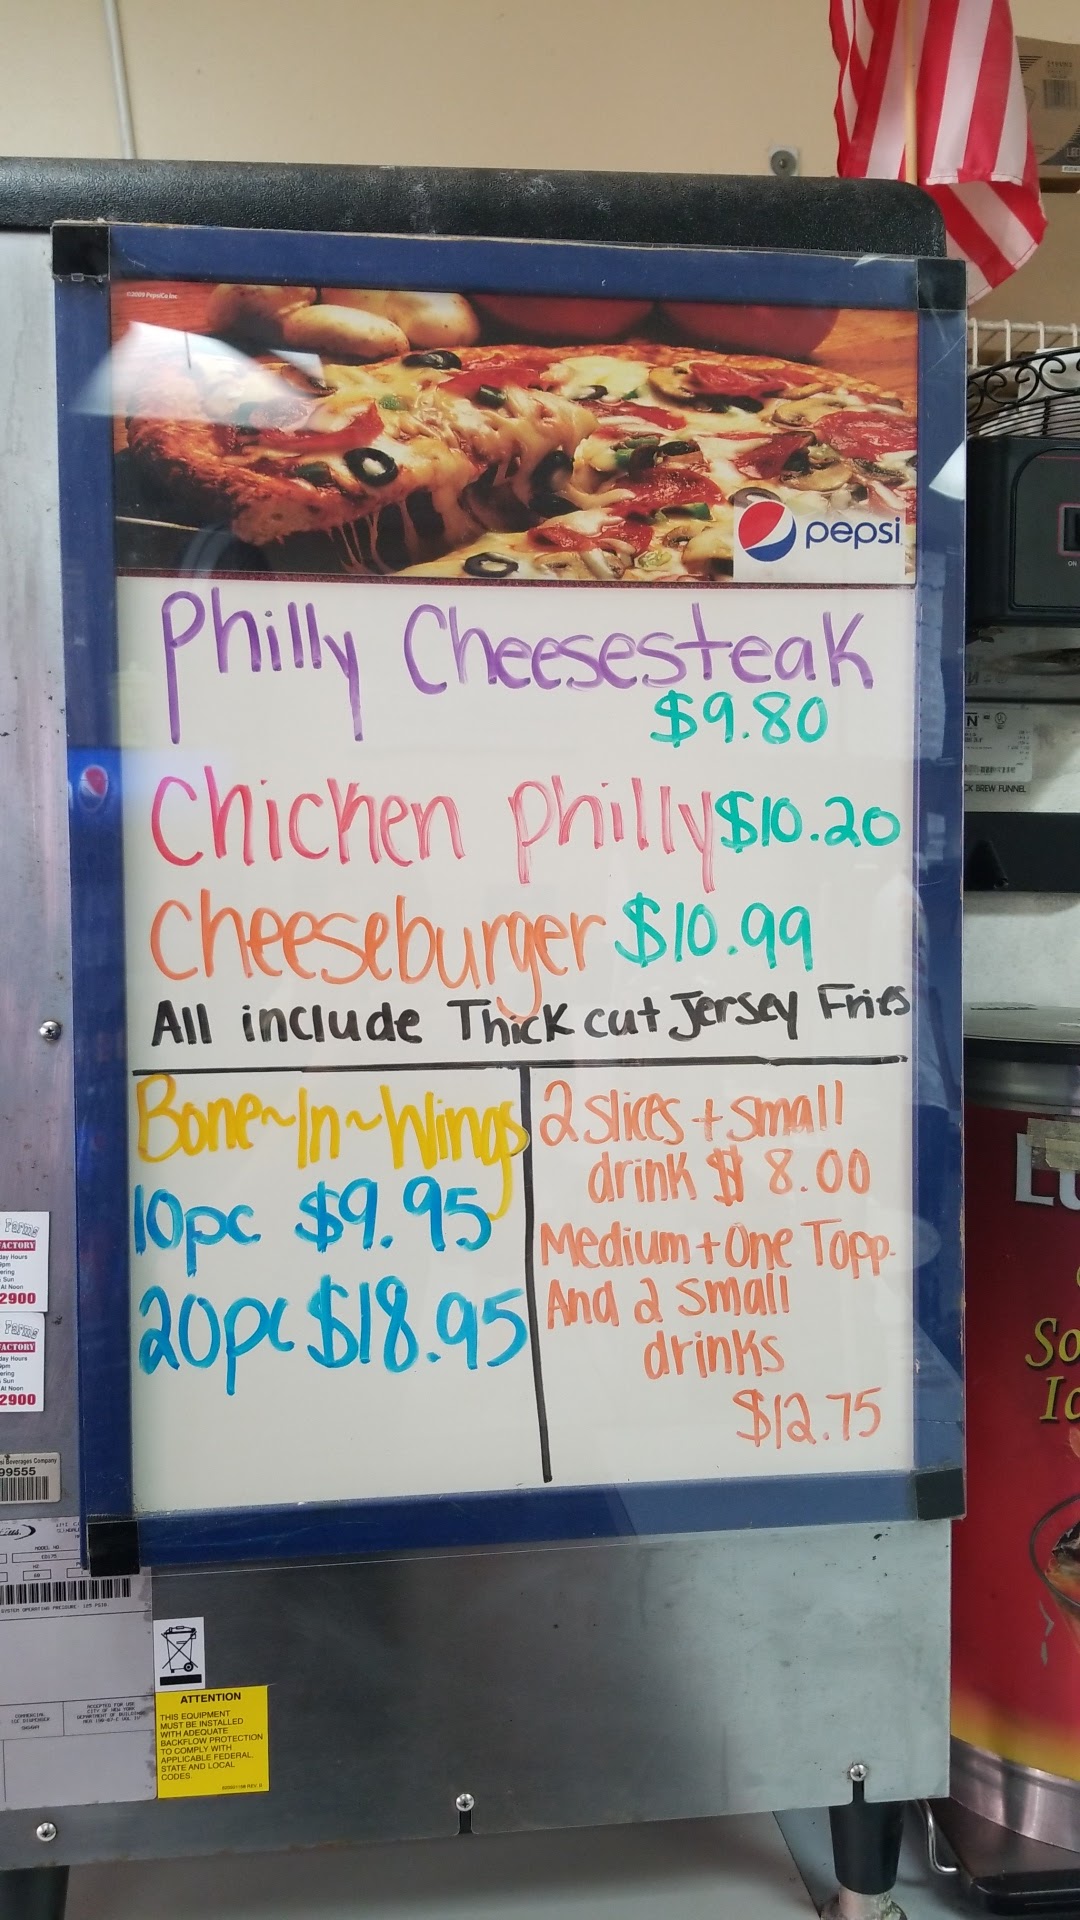 ©2009 PepsiCo Inc
pepsi
Philly Cheesesteak
$9.80
Chicken Philly $10.20
Cheeseburger $10.99
All include Thick cut Jersey Fries
Bone~In~Wings
10pc $9.95
20pc $18.95
2 slices + small
drink $ 8.00
Medium + One Topp.
And 2 Small
drinks
$12.75
Farms
FACTORY
day Hours
9pm
ering
Sun
At Noon
2900
Farms
FACTORY
day Hours
9pm
ering
Sun
At Noon
2900
si Beverages Company
99555
MODEL NO.
HZ
60
COMMERCIAL
ICE DISPENSER
ACCEPTED FOR USE
CITY OF NEW YORK
DEPARTMENT OF BUILDINGS
ATTENTION
THIS EQUIPMENT
MUST BE INSTALLED
WITH ADEQUATE
BACKFLOW PROTECTION
TO COMPLY WITH
APPLICABLE FEDERAL,
STATE AND LOCAL
CODES.
ON
N
CK BREW FUNNEL
So